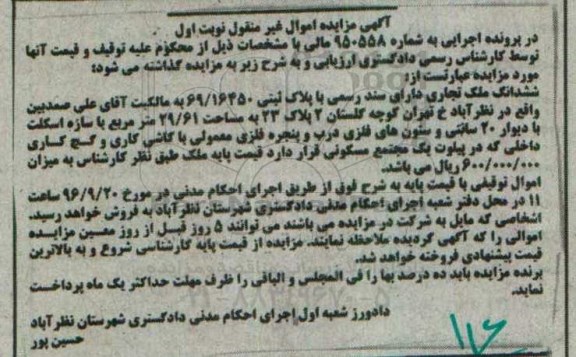 آگهی مزایده اموال غیر منقول نوبت اول
در پرونده اجرایی به شماره ۹۵۰۵۵۸ مالی با مشخصات ذیل از محکوم علیه توقیف و قیمت آنها
توسط کارشناس رسمی دادگستری ارزیابی و به شرح زیر به مزایده گذاشته می شود:
مورد مزایده عبارتست از:
ششدانگ ملک تجاری دارای سند رسمی با پلاک ثبتی ۶۹/۱۶۴۵۰ به مالکیت آقای علی صمدبین
واقع در نظرآباد خ تهران کوچه گلستان ۲ پلاک ۲۳ به مساحت ۲۹/۶۱ متر مربع با سازه اسکلت
با دیوار ۲۰ سانتی و ستون های فلزی درب و پنجره فلزی معمولی با کاشی کاری و گچ کاری
داخلی که در پیلوت یک مجتمع مسکونی قرار دارد قیمت پایه ملک طبق نظر کارشناس به میزان
۶۰۰/۰۰۰/۰۰۰ ریال می باشد.
اموال توقیفی با قیمت پایه به شرح فوق از طریق اجرای احکام مدنی در مورخ ۹۶/۹/۲۰ ساعت
۱۱ در محل دفتر شعبه اجرای احکام مدنی دادگستری شهرستان نظرآباد به فروش خواهد رسید.
اشخاصی که مایل به شرکت در مزایده می باشند می توانند ۵ روز قبل از روز معین مزایده
اموالی را که آگهی گردیده ملاحظه نمایند. مزایده از قیمت پایه کارشناسی شروع و به بالاترین
قیمت پیشنهادی فروخته خواهد شد.
برنده مزایده باید ده درصد بها را فی المجلس و الباقی را ظرف مهلت حداکثر یک ماه پرداخت
نماید.
دادورز شعبه اول اجرای احکام مدنی دادگستری شهرستان نظرآباد
حسین پور